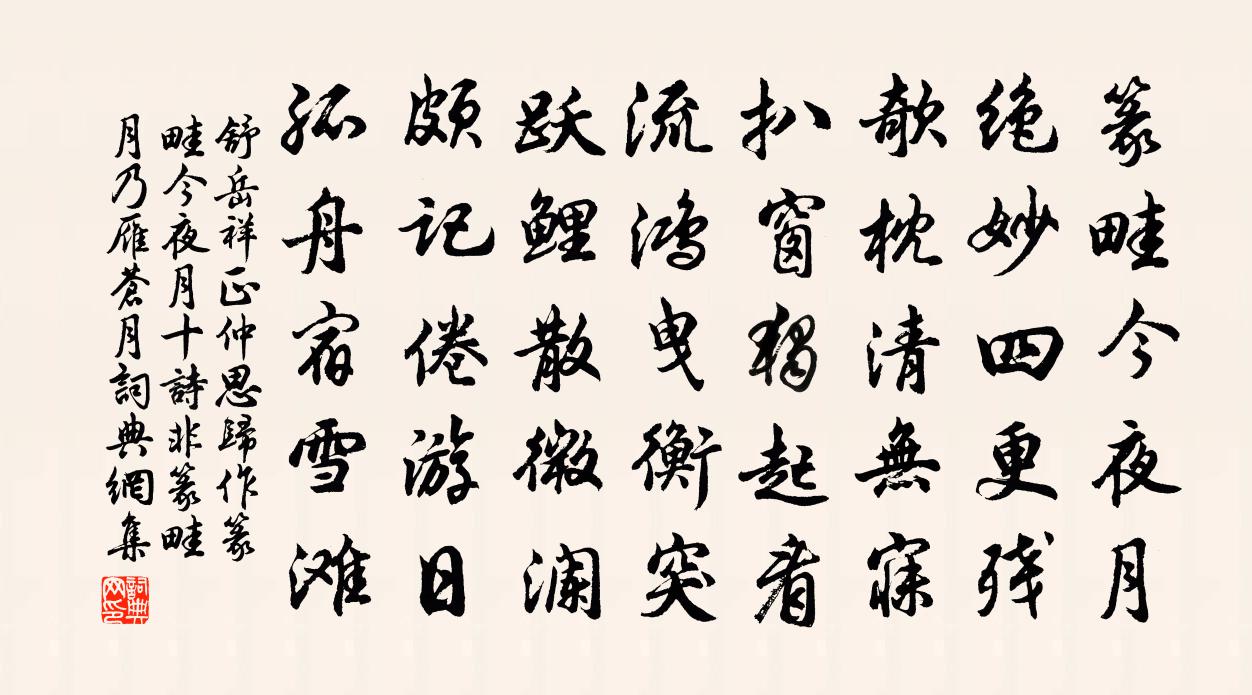 篆畦今夜月
绝妙四更残
欹枕清無寐
扒窗獨起看
流鸿曳衡突
跃鲤散微澜
颇记倦游日
孤舟宿雪滩
舒岳祥正仲思歸作篆
畦今夜月十詩非篆畦
月乃雁蒼月詞典網集
詞典网印